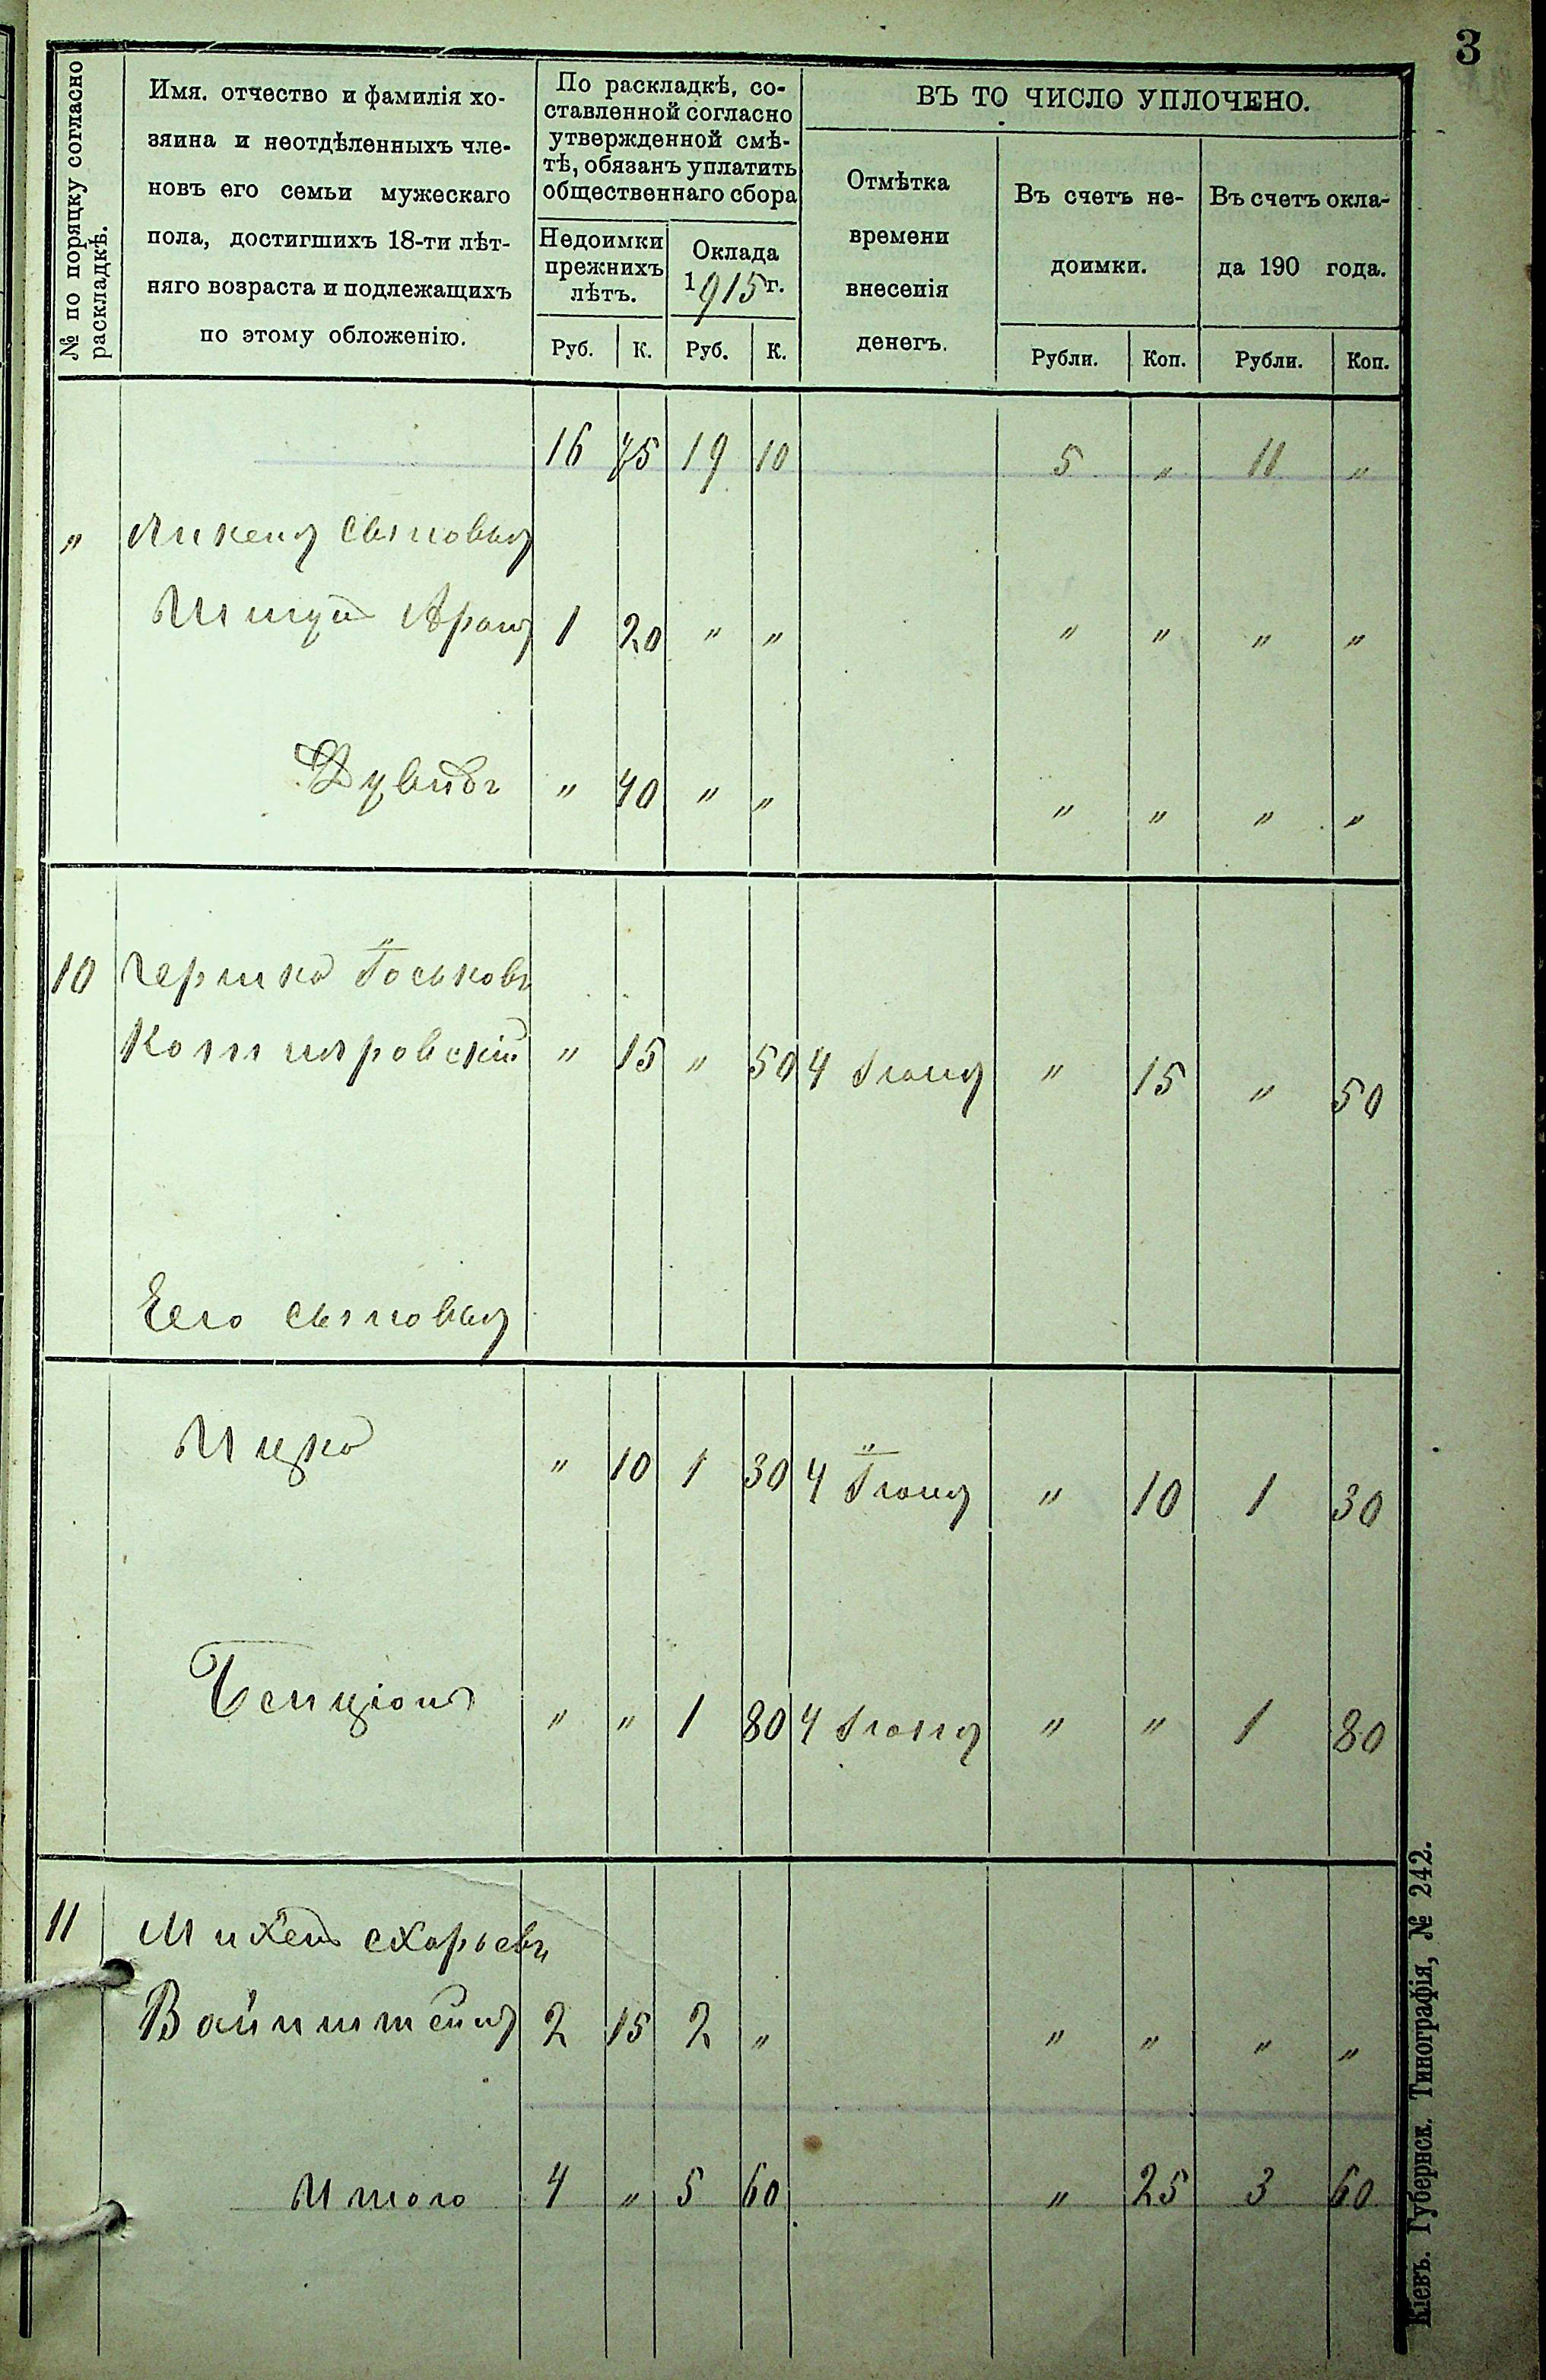 3
№ по поряцку согласно раскладкѣ.
Имя. отчество и фамилія хо-
зяина и неотдѣленныхъ чле-
новъ его семьи мужескаго
пола, достигшихъ 18-ти лѣт-
няго возраста и подлежащихъ
по этому обложенію.
По раскладкѣ, со-
ставленной согласно
утвержденной смѣ-
тѣ, обязанъ уплатить
общественнаго сбора
Недоимки
прежнихъ
лѣтъ.
Оклада
1915 г.
Руб. К. Руб. К.
ВЪ ТО ЧИСЛО УПЛОЧЕНО.
Отмѣтка
времени
внесенія
денегъ.
Въ счетъ не-
доимки.
Въ счетъ окла-
да 190 года.
Рубли. Коп. Рубли. Коп.
16 75 19 10 5 „ 11 „
„ сыновья
1 20 „ „ „ „ „ „
Дувидъ „ 40 „ „ „ „ „ „
10 Гершко Іоськовъ
„ 15 „ 50 4 Іюня „ 15 „ 50
Его сыновья
Ицко „ 10 1 30 4 Іюня „ 10 1 30
Бенціонъ „ „ 1 80 4 Іюня „ „ 1 80
11 Михель
Вайнштейнъ 2 15 2 „ „ „ „ „
Итого 4 „ 5 60 „ 25 3 60
Кіевъ. Губернск. Типографія, № 242.